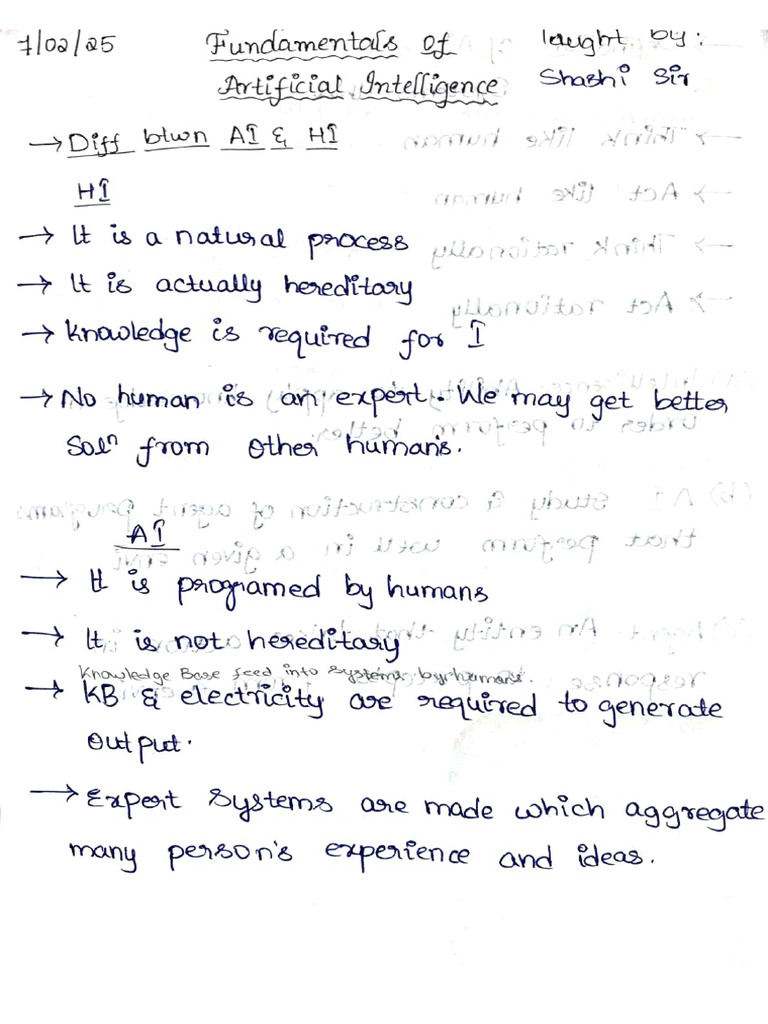 7/02/25 Fundamentals of taught by:
Artificial Intelligence Shashi Sir
→ Diff btwn AI & HI
HI
→ It is a natural process
→ It is actually hereditary
→ knowledge is required for I
→ No human is an expert. We may get better
Solⁿ from other human's.
AI
→ It is programed by humans
→ It is not hereditary
Knowledge Base feed into systems by humans.
→ KB & electricity are required to generate
output.
→ Expert systems are made which aggregate
many person's experience and ideas.